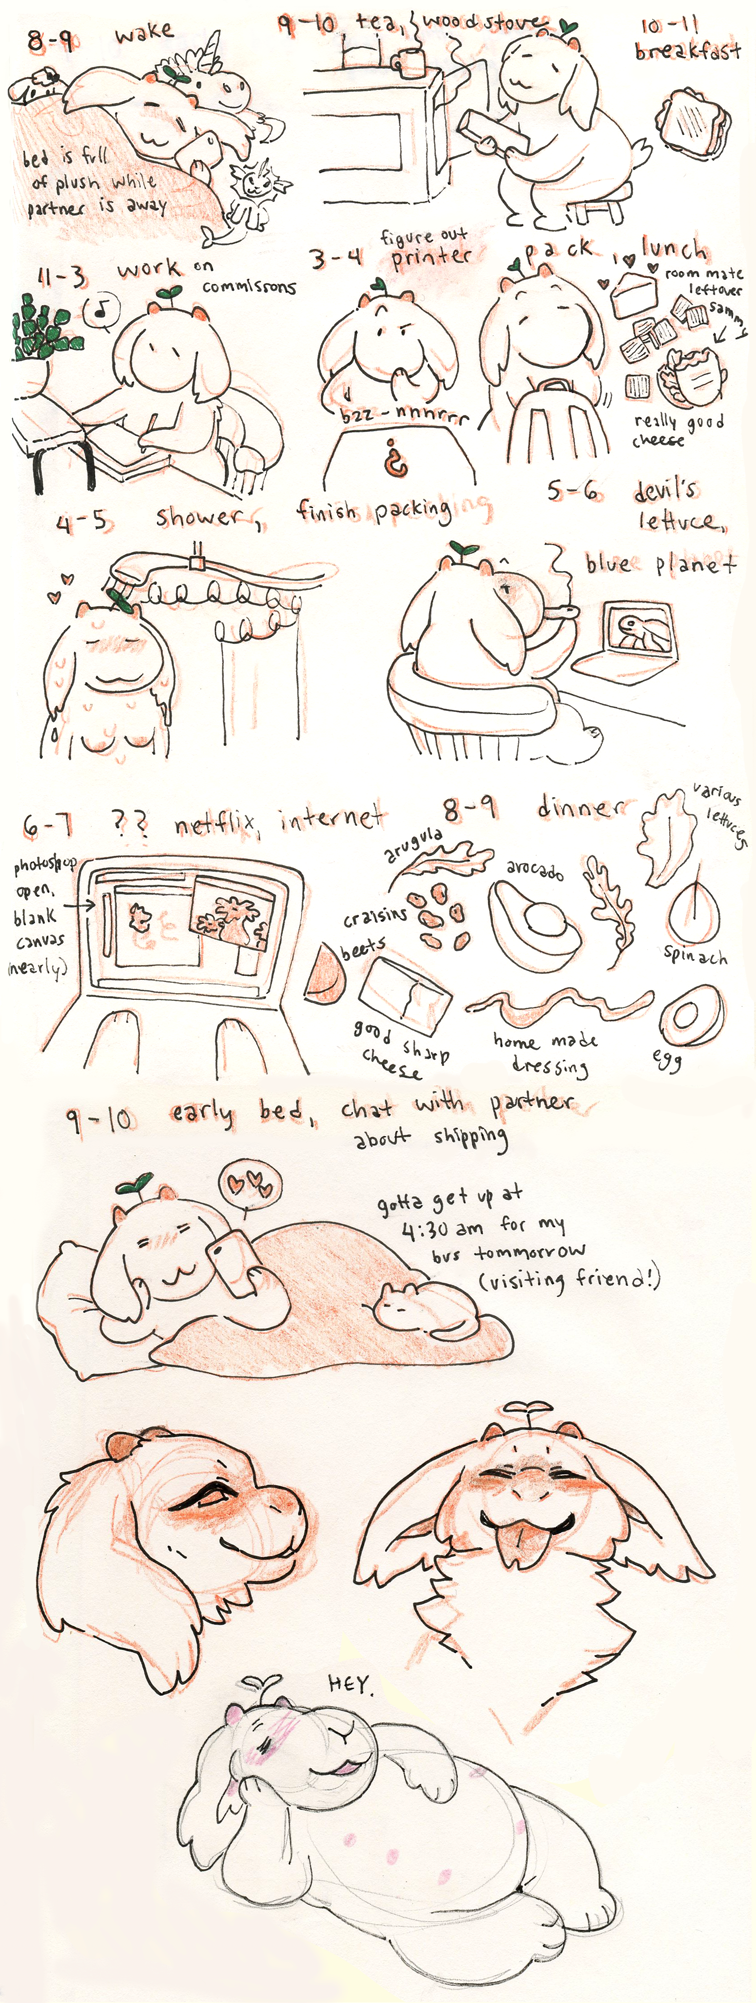 8-9 wake
bed is full
of plush while
partner is away
9-10 tea, woodstove
10-11
breakfast
11-3 work on
commissions
3-4 figure out
printer
bzz-nnnrrr
?
pack, lunch
room mate
leftover
samm
really good
cheese
4-5 shower, finish packing
5-6 devil's
lettuce,
blue planet
6-7 ?? netflix, internet
photoshop
open,
blank
canvas
(nearly)
8-9 dinner
arugula
craisins
beets
avocado
various
lettuces
spinach
good sharp
cheese
home made
dressing
egg
9-10 early bed, chat with partner
about shipping
gotta get up at
4:30 am for my
bus tommorrow
(visiting friend!)
HEY.